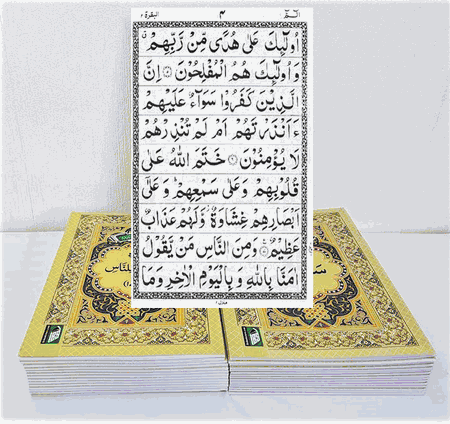 البقرة ٢ ٤ الٓمّٓ ١
اُولٰٓئِكَ عَلٰى هُدًى مِّنْ رَّبِّهِمْ ۙ
وَاُولٰٓئِكَ هُمُ الْمُفْلِحُوْنَ ۝ اِنَّ
الَّذِيْنَ كَفَرُوْا سَوَآءٌ عَلَيْهِمْ
ءَاَنْذَرْتَهُمْ اَمْ لَمْ تُنْذِرْهُمْ
لَا يُؤْمِنُوْنَ ۝ خَتَمَ اللّٰهُ عَلٰى
قُلُوْبِهِمْ وَعَلٰى سَمْعِهِمْ ؕ وَعَلٰٓى
اَبْصَارِهِمْ غِشَاوَةٌ ؗ وَّلَهُمْ عَذَابٌ
عَظِيْمٌ ۝ وَمِنَ النَّاسِ مَنْ يَّقُوْلُ
اٰمَنَّا بِاللّٰهِ وَبِالْيَوْمِ الْاٰخِرِ وَمَا